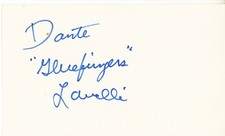 Dante
"Gluefingers"
Lavelli